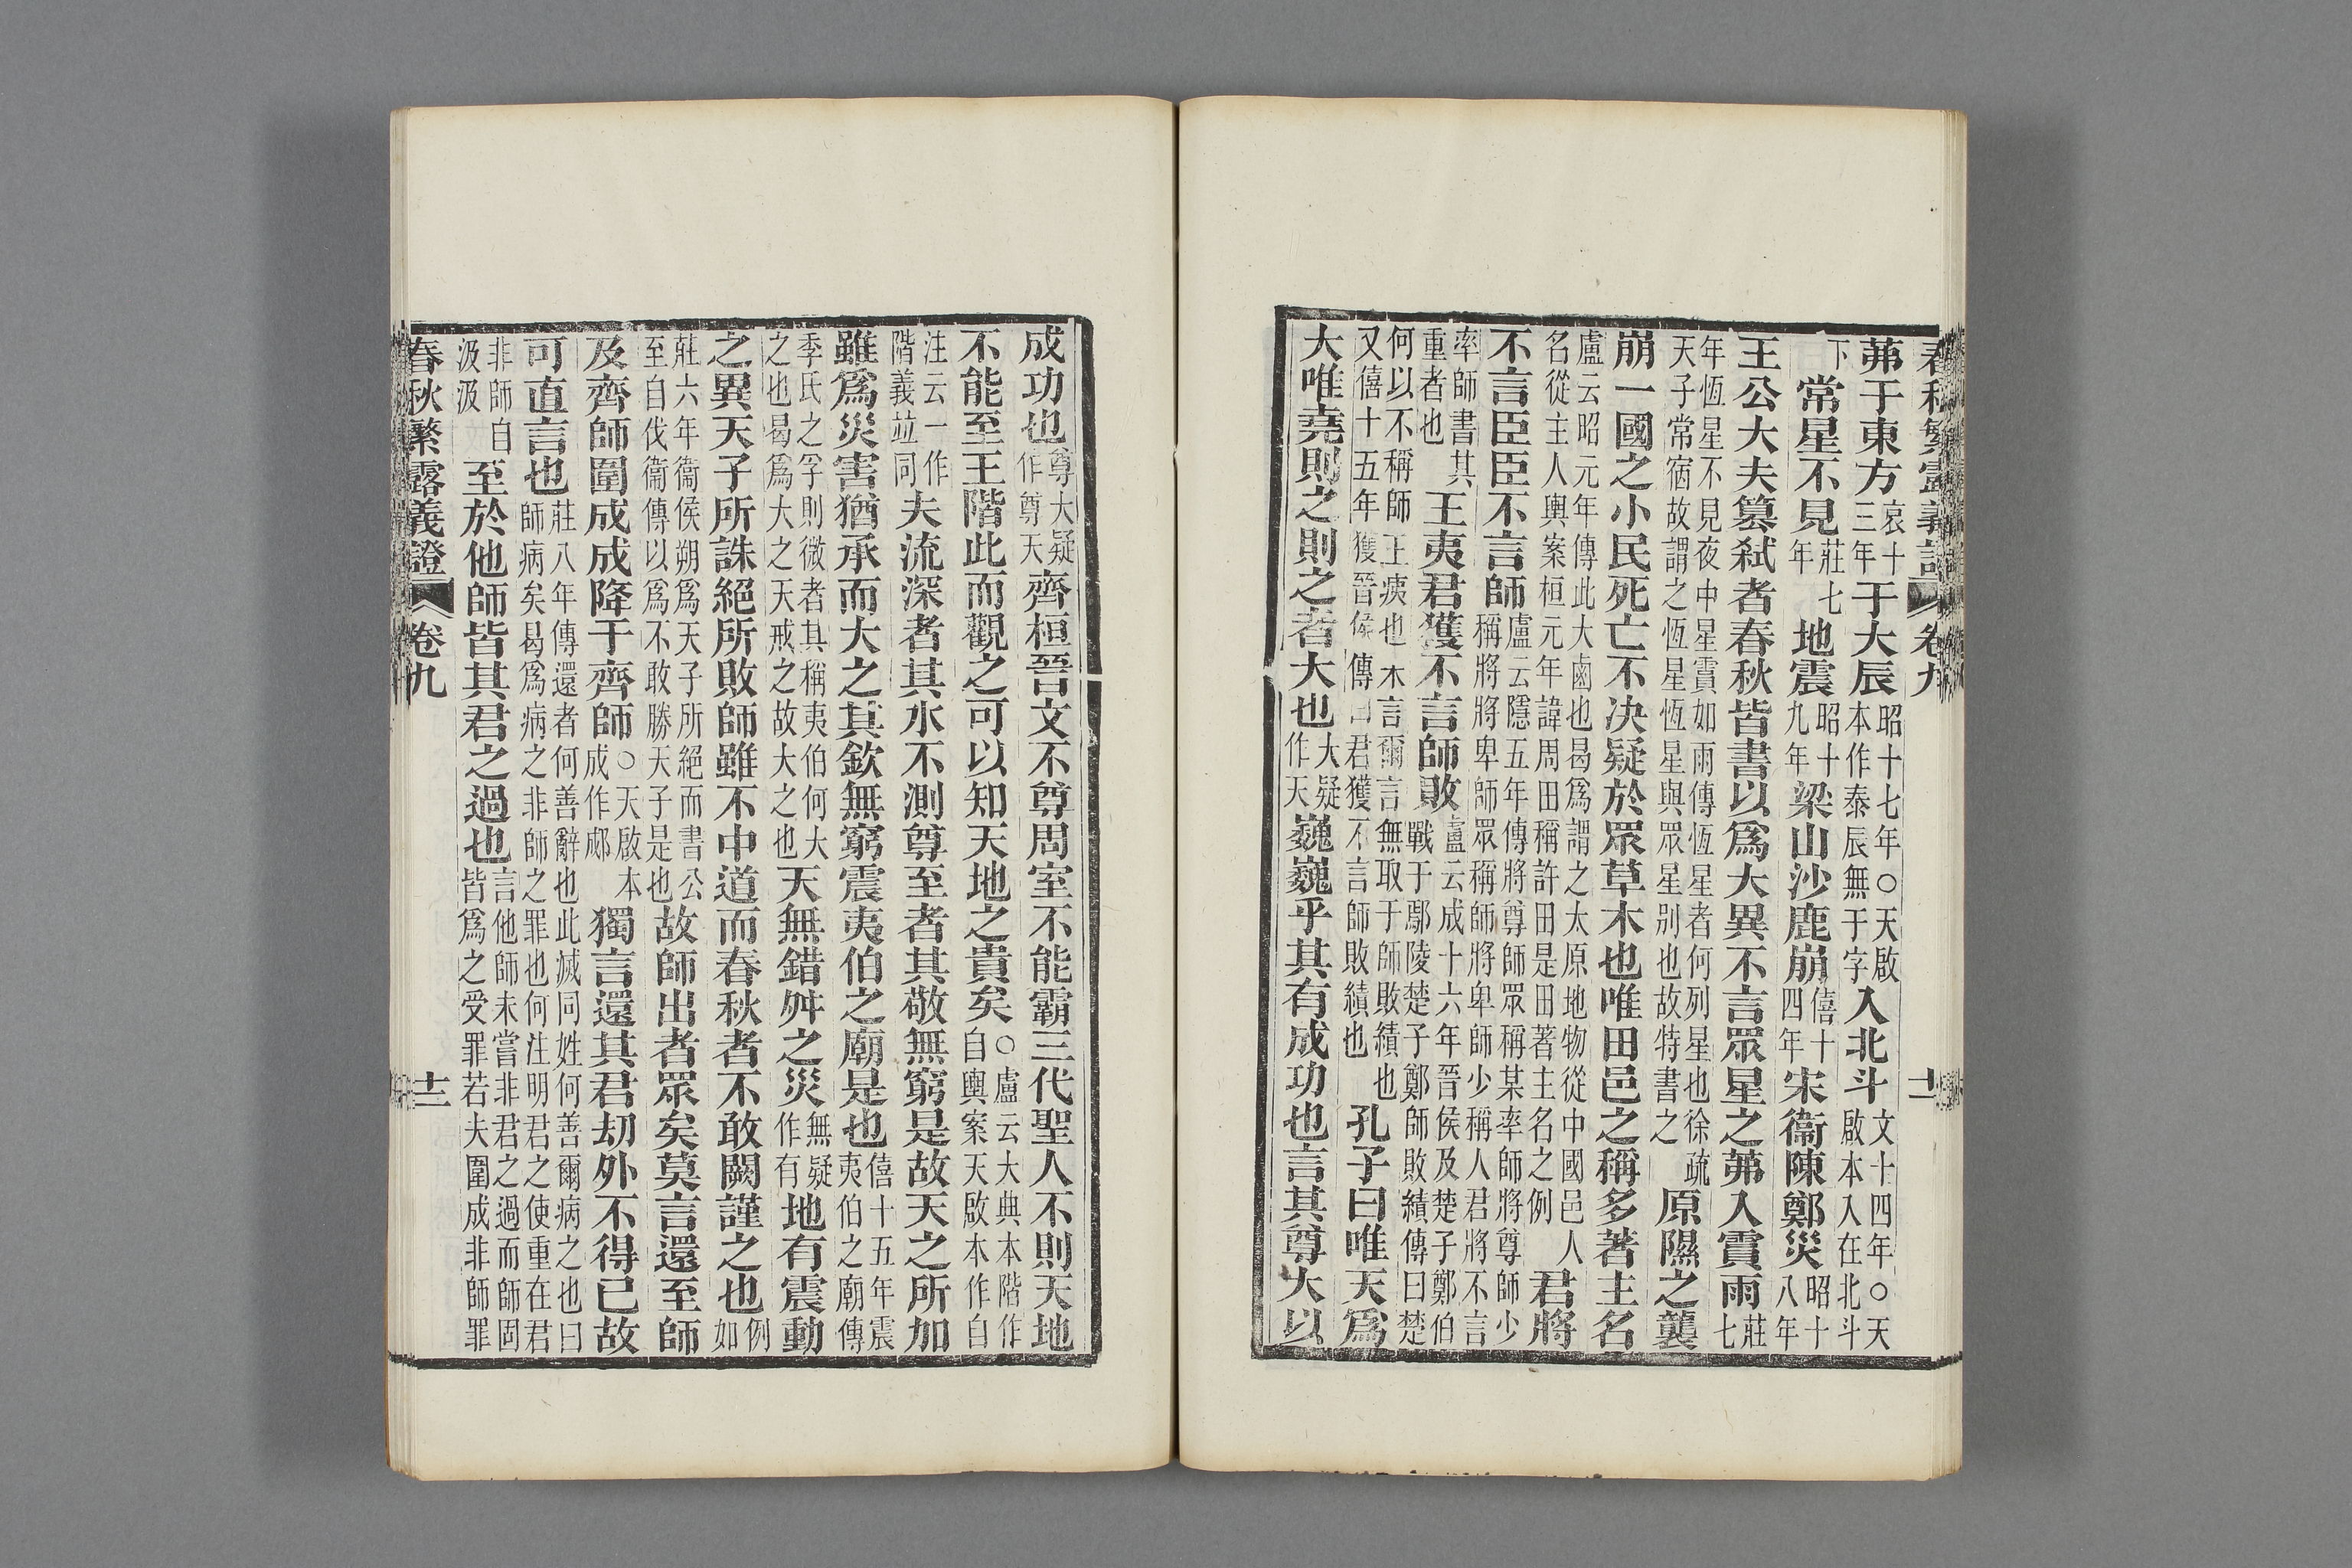 春秋繁露義證 卷九 十一
茀于東方哀十三年于大辰昭十七年○天啟本作泰辰無于字入北斗文十四年○天啟本入在北斗
下常星不見莊七年地震昭十九年梁山沙鹿崩僖十四年宋衞陳鄭災昭十八年
王公大夫篡弒者春秋皆書以爲大異不言眾星之茀入霣雨莊七
年恆星不見夜中星霣如雨傳恆星者何列星也徐疏天子常宿故謂之恆星恆星與眾星別也故特書之原隰之襲
崩一國之小民死亡不决疑於眾草木也唯田邑之稱多著主名
盧云昭元年傳此大鹵也曷爲謂之太原地物從中國邑人名從主人輿案桓元年諱周田稱許田是田著主名之例君將
不言臣臣不言師盧云隱五年傳將尊師眾稱某率師將尊師少稱將將卑師眾稱師將卑師少稱人君將不言
率師書其重者也王夷君獲不言師敗盧云成十六年晉侯及楚子鄭伯戰于鄢陵楚子鄭師敗績傳曰楚
何以不稱師王痍也末言爾言無取于師敗績也又僖十五年獲晉侯傳曰君獲不言師敗績也孔子曰唯天爲
大唯堯則之則之者大也大疑作天巍巍乎其有成功也言其尊大以
成功也尊大疑作尊天齊桓晉文不尊周室不能霸三代聖人不則天地
不能至王階此而觀之可以知天地之貴矣○盧云大典本階作自輿案天啟本作自
注云一作階義竝同夫流深者其水不測尊至者其敬無窮是故天之所加
雖爲災害猶承而大之其欽無窮震夷伯之廟是也僖十五年震夷伯之廟傳
季氏之孚則微者其稱夷伯何大之也曷爲大之天戒之故大之也天無錯舛之災無疑作有地有震動
之異天子所誅絕所敗師雖不中道而春秋者不敢闕謹之也例如
莊六年衞侯朔爲天子所絕而書公至自伐衞傳以爲不敢勝天子是也故師出者眾矣莫言還至師
及齊師圍成成降于齊師○天啟本成作郕獨言還其君劫外不得已故
可直言也莊八年傳還者何善辭也此滅同姓何善爾病之也曰師病矣曷爲病之非師之罪也何注明君之使重在君
非師自汲汲至於他師皆其君之過也言他師未嘗非君之過而師固皆爲之受罪若夫圍成非師罪
春秋繁露義證 卷九 十二